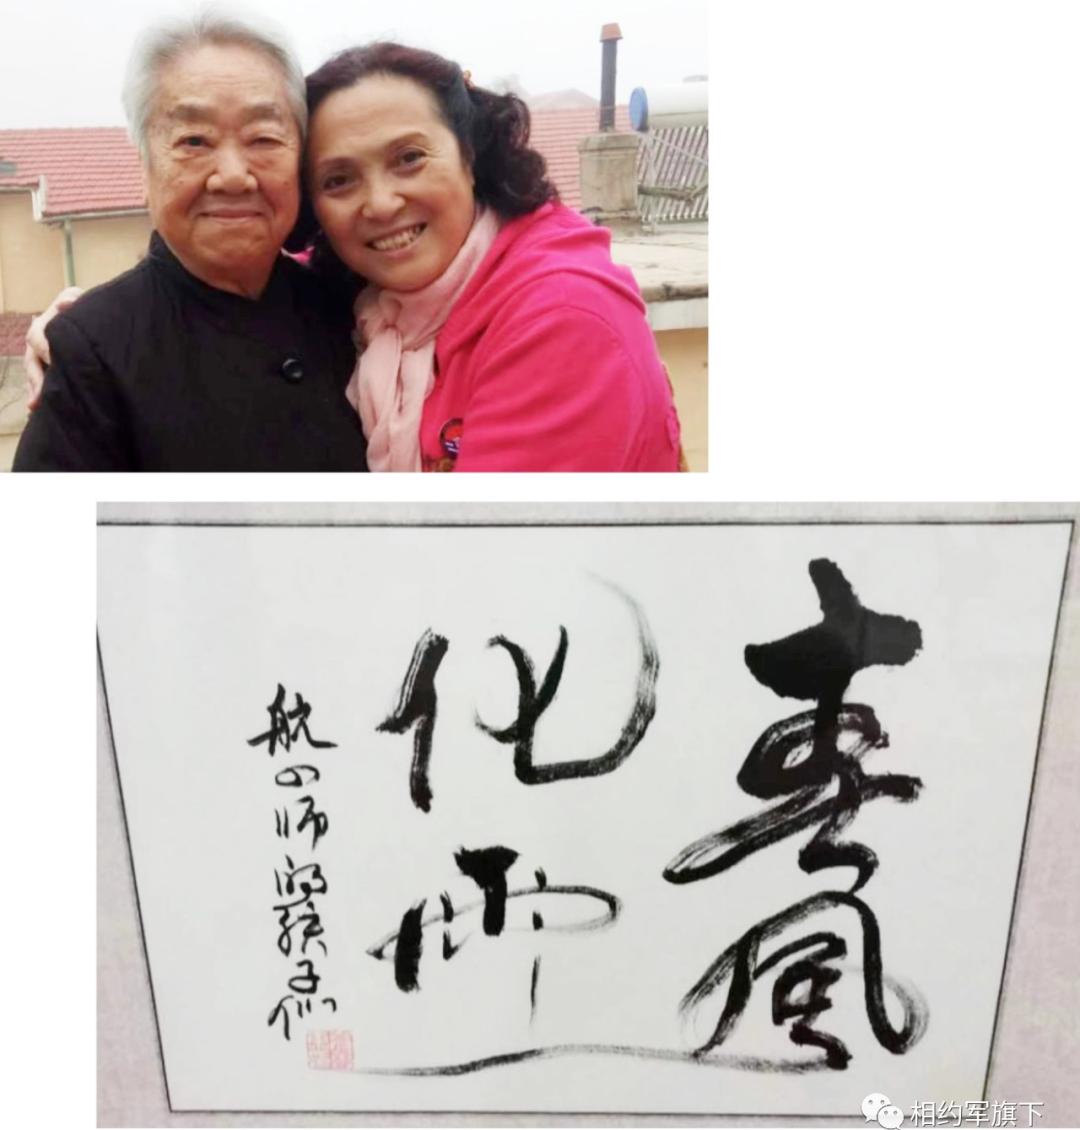 春风
化雨
航四师的孩子们
相约军旗下